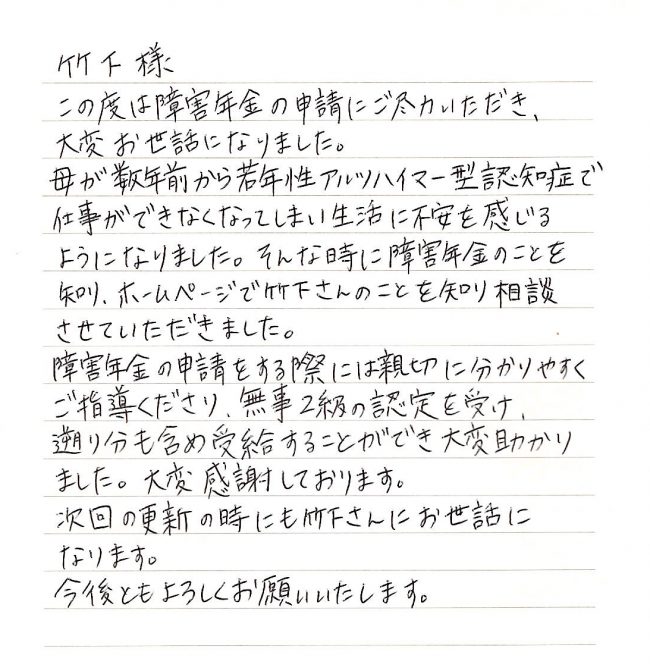 竹下様
この度は障害年金の申請にご尽力いただき、
大変お世話になりました。
母が数年前から若年性アルツハイマー型認知症で
仕事ができなくなってしまい生活に不安を感じる
ようになりました。そんな時に障害年金のことを
知り、ホームページで竹下さんのことを知り相談
させていただきました。
障害年金の申請をする際には親切に分かりやすく
ご指導くださり、無事2級の認定を受け、
遡り分も含め受給することができ大変助かり
ました。大変感謝しております。
次回の更新の時にも竹下さんにお世話に
なります。
今後ともよろしくお願いいたします。